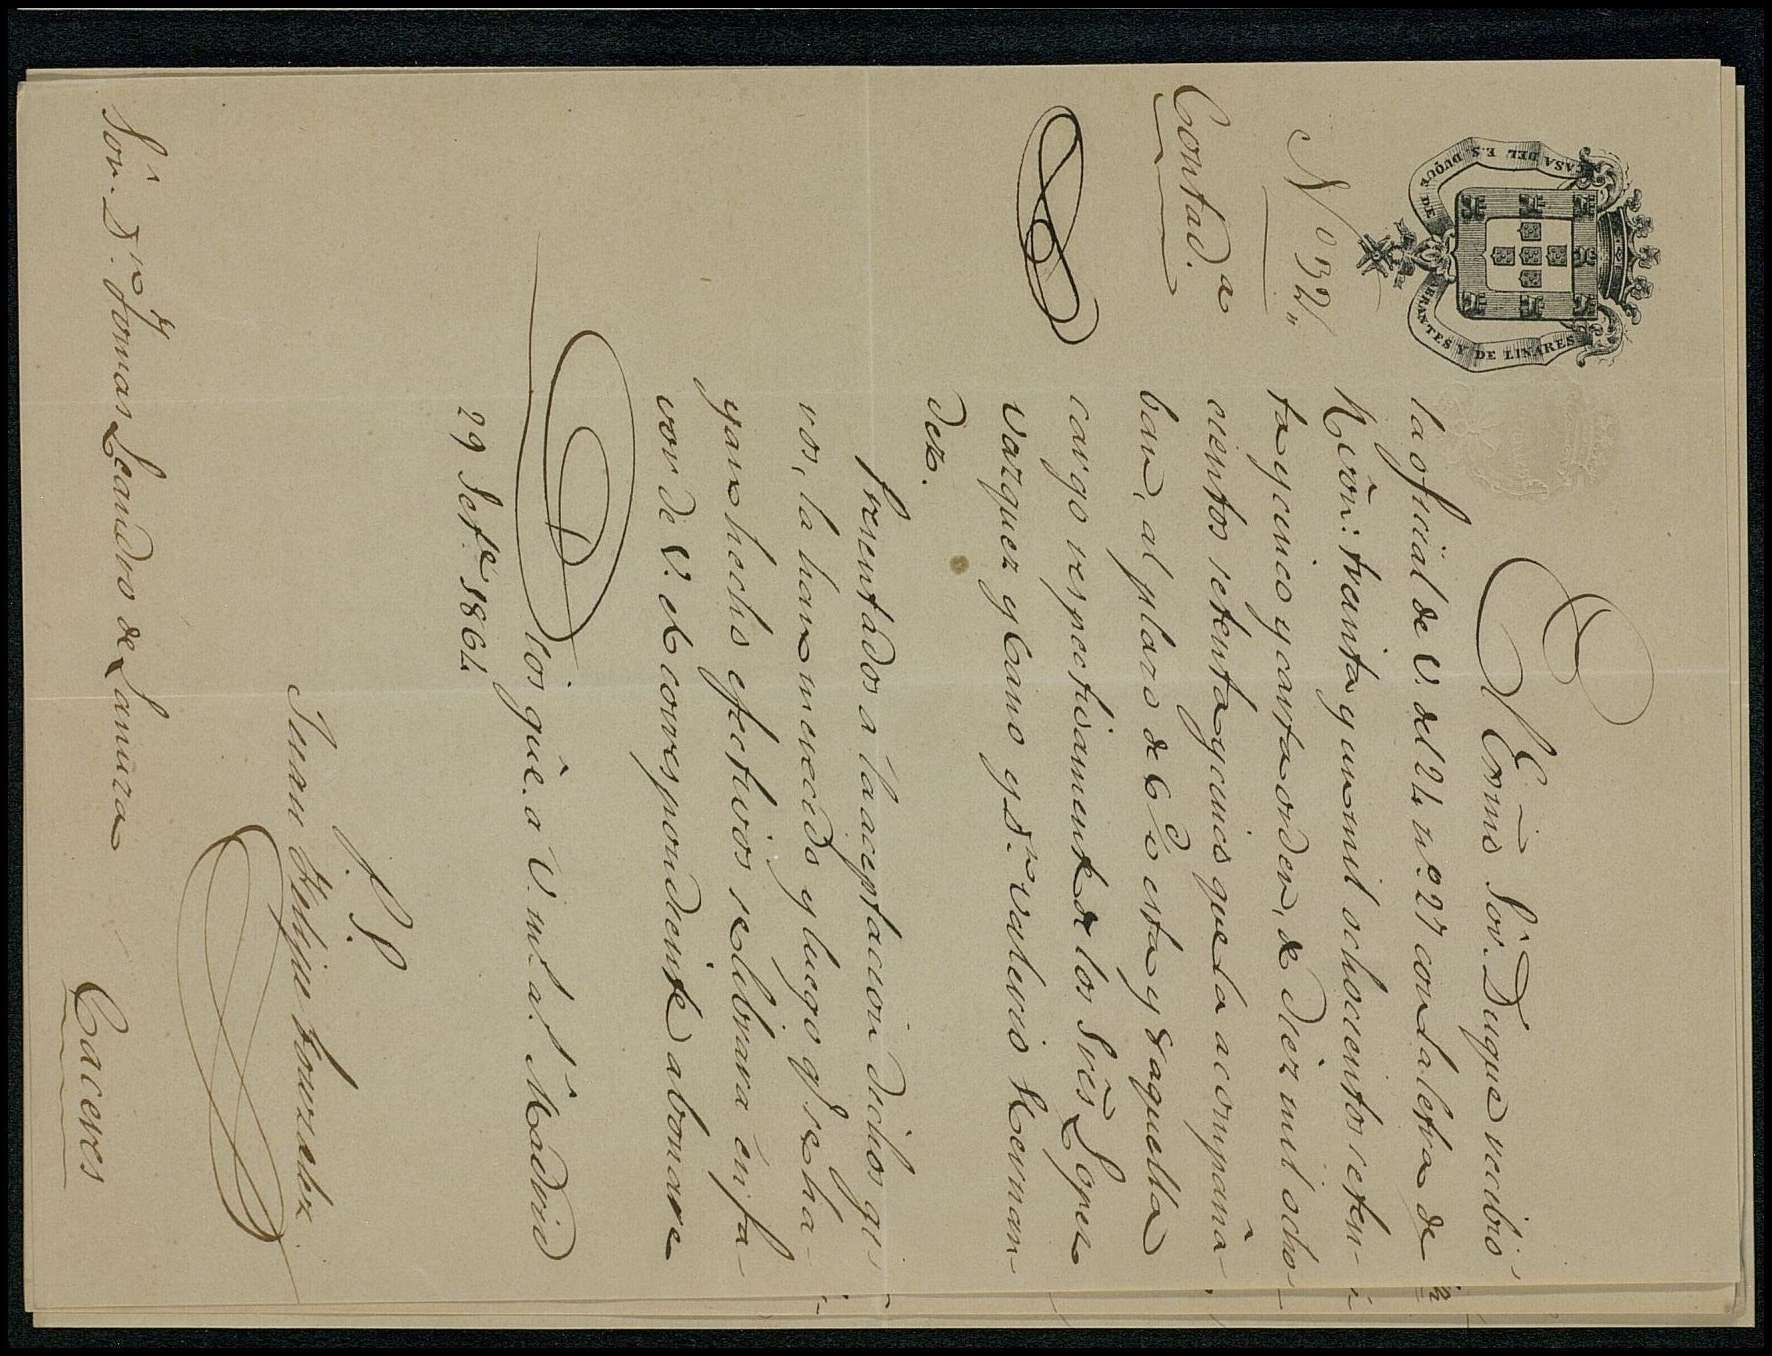 CASA DEL E.S. DUQUE DE ABRANTES Y DE LINARES
N.º 32,,
Contad.ª
El Exmo Sor. Duque recibió
la oficial de V. del 24 nº 27 con la letra de
Rvōn: treinta y un mil ochocientos seten-
ta y cinco y carta orden, de diez mil ocho-
cientos setenta y cinco que la acompaña-
ban, al plazo de 6 d/v esta y Saquella
cargo respectivamente de los Srēs Lopez
Vazquez y Cano y Dn. Valerio Hernan-
dez.
Presentados a la aceptacion dichos gi-
ros, la han merecido y luego q.e se ha-
yan hecho efectivos se librará en fa-
vor de V. el correspondiente abonaré
Dios gūe. a V. m.s a.s Madrid
29 Set.e 1864
P. S.
Juan Felipe Gonzalez
Sor. Dn. Tomas Leandro de Lamiera
Caceres